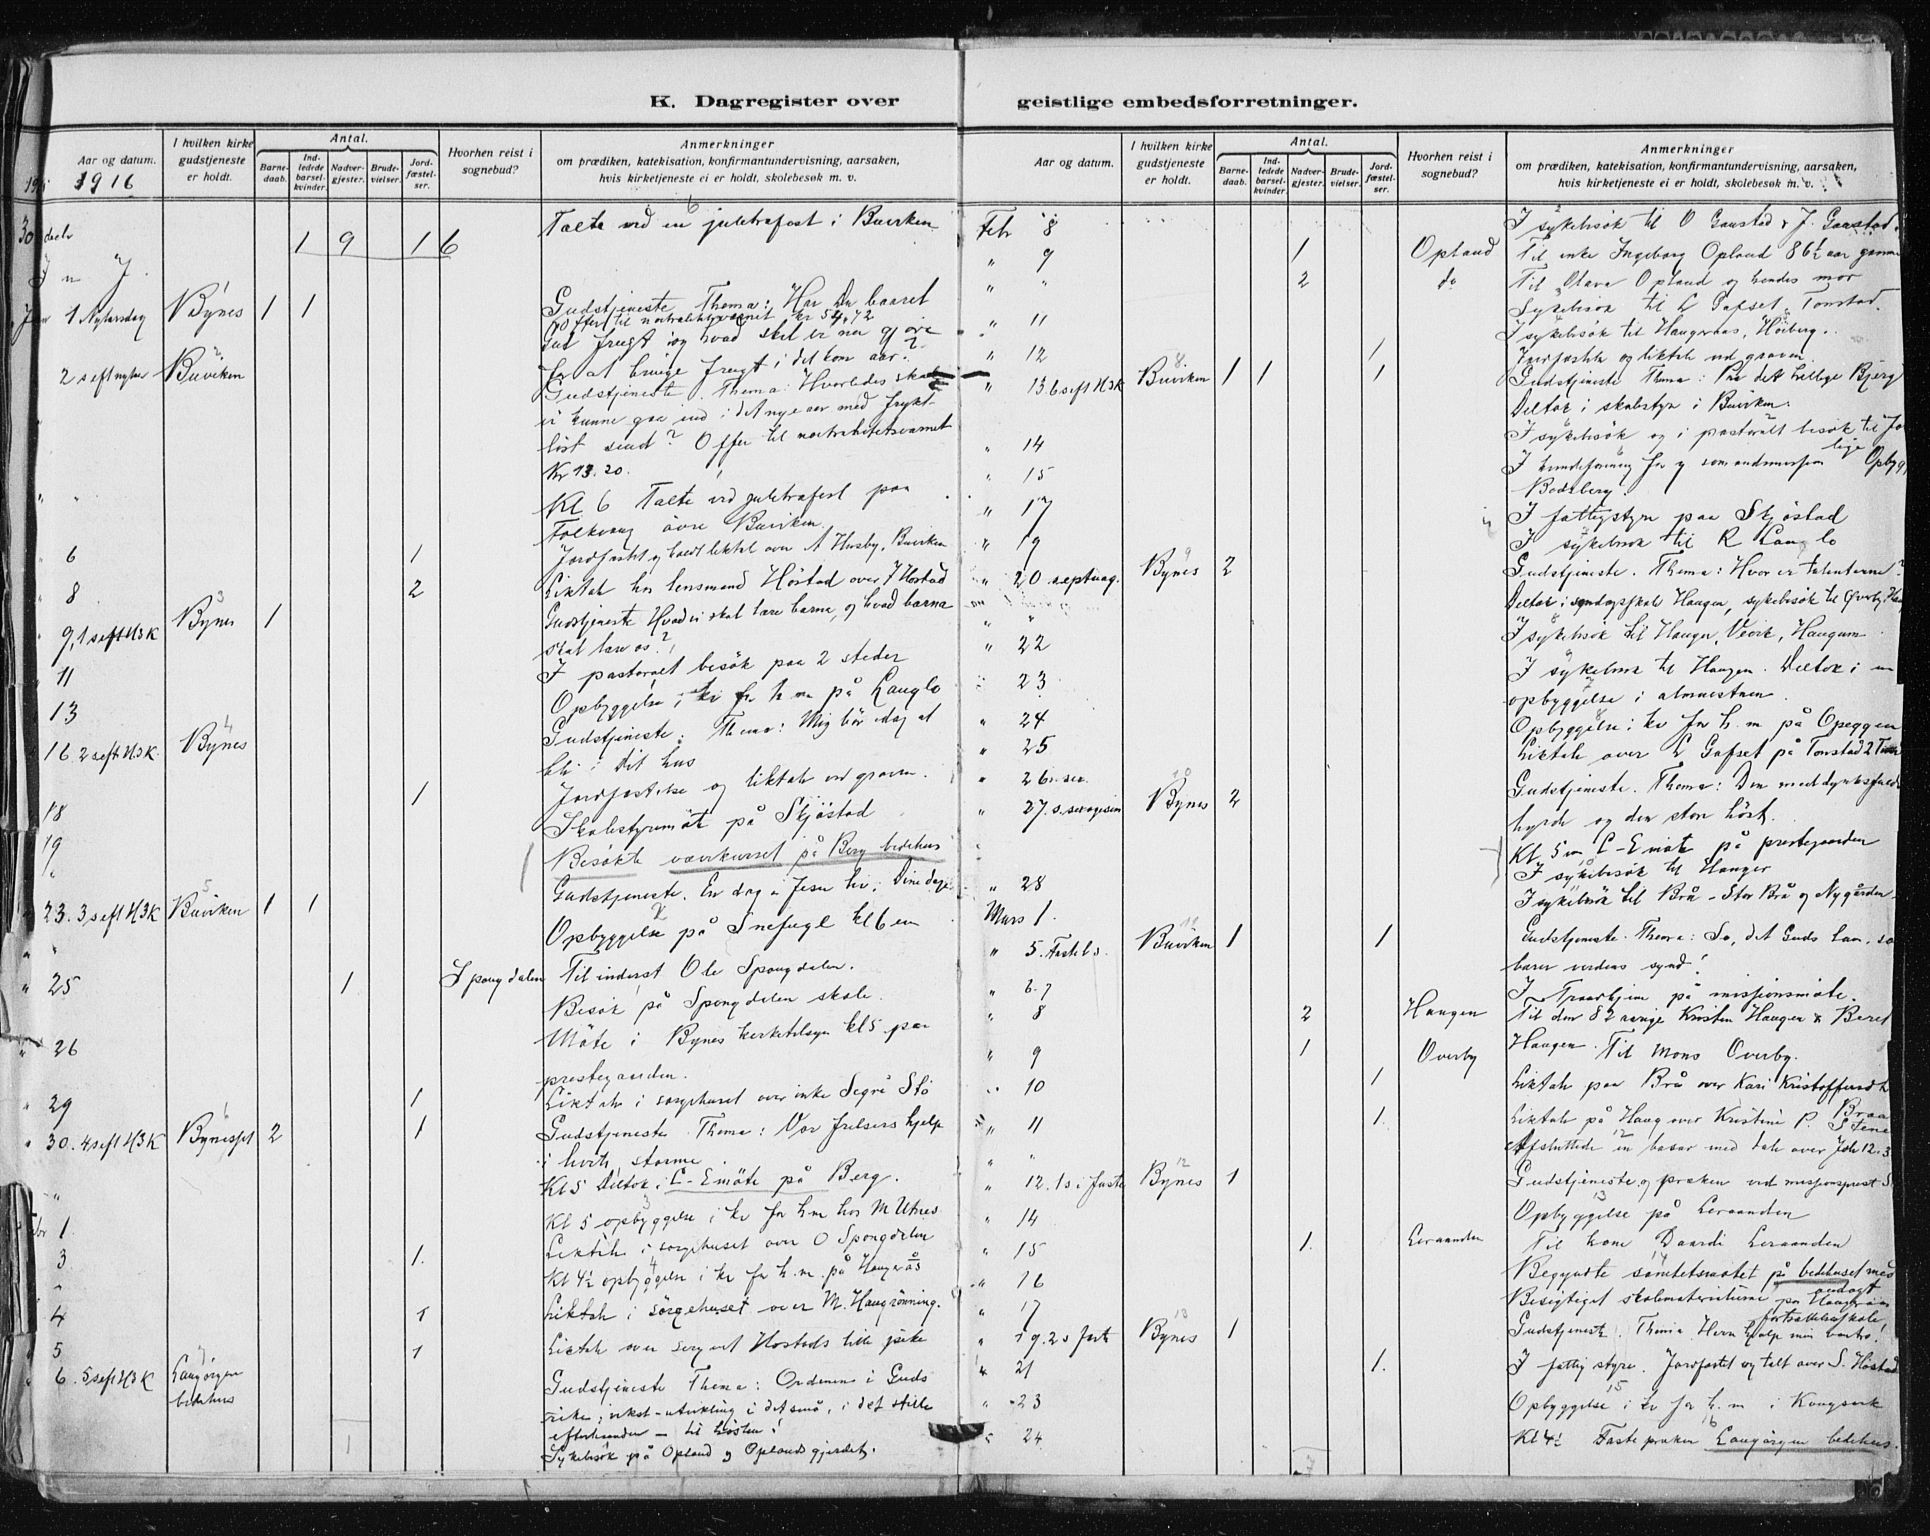 K. Dagregister over
Aar og datum.
I hvilken kirke gudstjeneste er holdt.
Antal.
Barnedaab.
Indledede barselkvinder.
Nadvergjester.
Brudevielser.
Jordfæstelser.
Hvorhen reist i sognebud?
Anmerkninger
om prædiken, katekisation, konfirmantundervisning, aarsaken,
hvis kirketjeneste ei er holdt, skolebesøk m. v.
1916
30 Talte ved en juletræfest i Buviken
1 9 16
1 Nytaarsdag Bynes 1 1 Gudstjeneste Thema: Har Du baaret
Offer til kr 54,72
Gud frugt og hvad skal vi nu gjøre
for at bringe frugt i det kom aar?
2 s eft nytaar Buviken Gudstjeneste. Thema: Hvorledes skal
vi kunne gaa ind i det nye aar med frykt-
löst sind? Offer til nøitralitetsvernet
Kr 13.20.
Kl 6 Talte ved juletræfest paa
Folkvang övre Buviken.
6 1 Jordfæstet og holdt liktale over A Husby, Buviken
8 2 Liktale hos lensmand Höstad over J Höstad
9, 1 s eft H3K Bynes 1 Gudstjeneste Hvad vi skal lære barna, og hvad barna
skal lære os?
11 I pastoralt besök paa 2 steder
13 Opbyggelse i kv for h m på Langlo
16. 2 s eft H3K. Bynes Gudstjeneste. Thema: Mig bör idag at
bli i dit hus
18 1 Jordfæstelse og liktale ved graven.
19 Skolestyremöte på Skjöstad
Besökte vævkurset på Berg bedehus
23. 3 s eft H3K Buviken 1 1 Gudstjeneste. En dag i Jesu liv i Dine dage
Opbyggelse på Snefugl kl 6 em
25 1 Spongdalen Til inderst Ole Spongdalen.
Besök på Spongdalen skole.
26 Möte i Bynes kerketilsyn kl 5 paa
prestegaarden.
29 1 Liktale i sörgehuset over enke Segri Stö
30. 4 s eft H3K Bynesset 2 1 Gudstjeneste. Thema: Vor frelsers hjelp
i livets storme
Kl 5 Deltok i C-E möte på Berg.
1 Kl 5 opbyggelse i kv for h m hos M Utnes
3 1. Liktale i sörgehuset over O Spongdalen
Kl 4½ opbyggelse i kv for h. m. på Haugerås
4 1 Liktale i sörgehuset over M. Haugrönning.
5 1 Liktale over Hostads lille pike
6. 5 s eft H3K Langörgen bedehus Gudstjeneste Thema: Ordenen i Guds
rike; vekst-utvikling i det små, i det stille
efterhaanden - til hösten!
Sykebesök på Opland og Oplandsgjerdet.
geistlige embedsforretninger.
Aar og datum.
I hvilken kirke gudstjeneste er holdt.
Antal.
Barnedaab.
Indledede barselkvinder.
Nadvergjester.
Brudevielser.
Jordfæstelser.
Hvorhen reist i sognebud?
Anmerkninger
om prædiken, katekisation, konfirmantundervisning, aarsaken,
hvis kirketjeneste ei er holdt, skolebesøk m. v.
Febr 8 I sykebesök til O Gaustad & J. Gaustad.
" 9 1 Opland Til enke Ingeborg Opland 86½ aar gammel
" " 2 do Til Olava Opland og hendes mor
Sykebesök til L Gafset, Tonstad.
" 11 I sykebesök til Haugernes, Höiberg.
" 12 1 Jordfæstelse og liktale ved graven.
" 13 6 s eft H3K Buviken 1 1 1 Gudstjeneste Thema: Paa det hellige Bjerg
Deltok i skolestyre i Buviken.
" 14 I sykebesök og i pastoralt besök til
" 15 I kvindeforening for
Bodsberg.
" 17 I fattigstyre paa Skjöstad
" 19 I sykebesök til R Langlo
" 20 septuag. Bynes 2 Gudstjeneste. Thema: Hvor er talenterne?
Deltok i söndagsskole Haugen, sykebesök til Överby
" 22 I sykebesök til Haugen, Vevik, Haugum
" 23 I sykebesök til Haugen. Deltok i en
opbyggelse i almuestuen
" 24 Opbyggelse i kv for h. m på Opeggen
" 25 Liktale over L Gafset på Tonstad
" 26
" 27. s. sexagesim Bynes 2 Gudstjeneste. Thema: Den meddynksfulde
hyrde og den store höst.
Kl. 5 em C-E möte på prestegaarden
" 28 I sykebesök til Hanger
Mars 1. I sykebesök til Brå - Stor Brå og Nygården
" 5. Fastel s. Buviken 1 1 Gudstjeneste. Thema: Se, det Guds Lam, som
bærer verdens synd!
" 6. 7 I Trondhjem på missjonsmöte.
" 8 2 Haugen Til den 82 aarige Kristen Haugen & Beret
Haugen.
" 9 1 Overby Til Mons Overby.
" 10 1 Liktale paa Brå over Kari Kristoffersdt
Braa
" 11 1. Liktale på Haug over Kristine P. Stene
" " Afsluttede en basar med tale over Joh 12.3
" 12. 1 s i faste Bynes 1 Gudstjeneste og præken ved missjonsprest
" 14 Opbyggelse på Leraanden
" 15 1. Leraanden Til kone Daardi Leraanden
" 16 Begyndte samtetsmötet på bedehuset med
andagt
" 17 Besigtiget skolematerialerne paa Haugeraasen
fortsættelsesskole
" 19. 2 s fast Bynes 1 Gudstjeneste. Thema Herre hjelp min vantro!
" 21 1. I fattigstyre. Jordfæstet og talt over S. Höstad
" 23 Opbyggelse i kv for h. m i Kongsvik
" 24 Kl 4½ Fastepræken Langörgen bedehus.